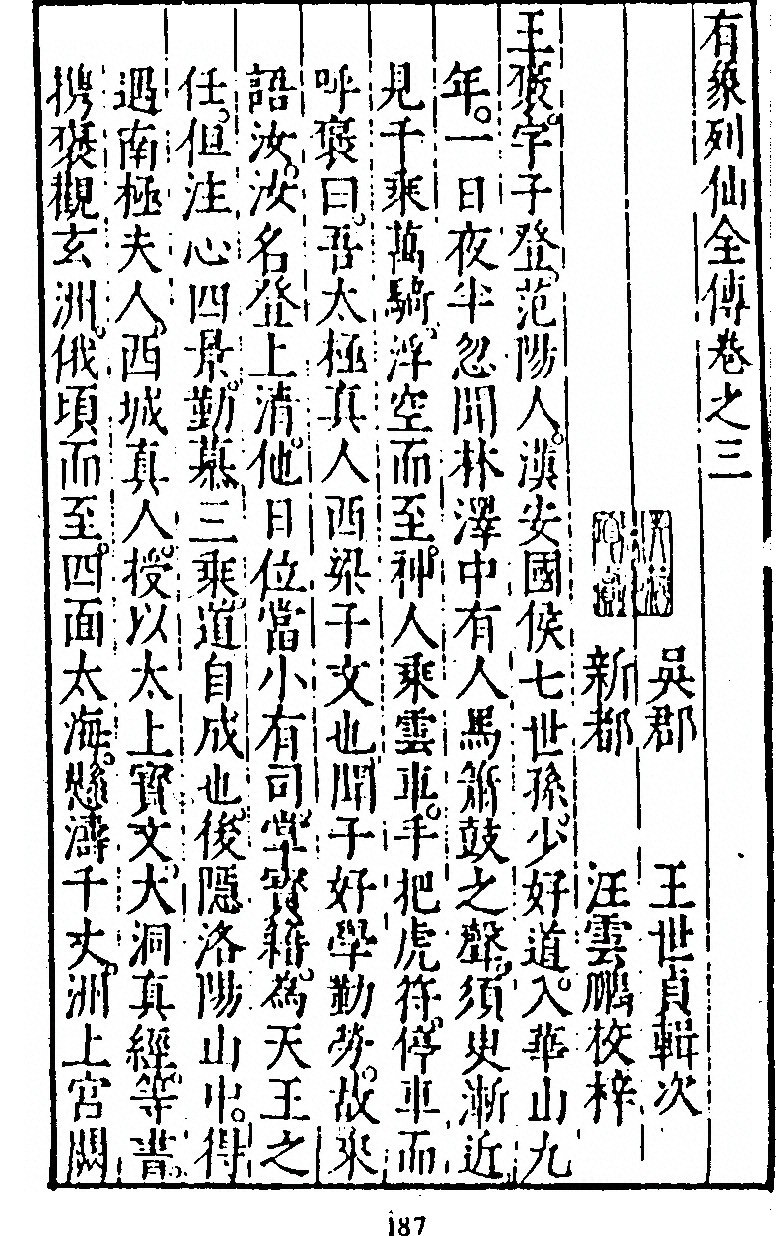 有象列仙全傳卷之三
吳郡 王世貞輯次
新都 汪雲鵬校梓
王褒。字子登。范陽人。漢安國侯七世孫。少好道。入華山九
年。一日夜半忽聞林澤中有人馬簫鼓之聲。須臾漸近。
見千乘萬騎。浮空而至。神人乘雲車。手把虎符。停車而
呼褒曰。吾太極真人西梁子文也。聞子好學勤勞。故來
語汝。汝名登上清。他日位當小有司掌寶籍。為天王之
任。但注心四景。勤慕三乘。道自成也。後隱洛陽山中。得
遇南極夫人。西城真人。授以太上寶文。大洞真經等書。
携褒觀玄洲。俄頃而至。四面太海。懸濤千丈。洲上宮闕
187